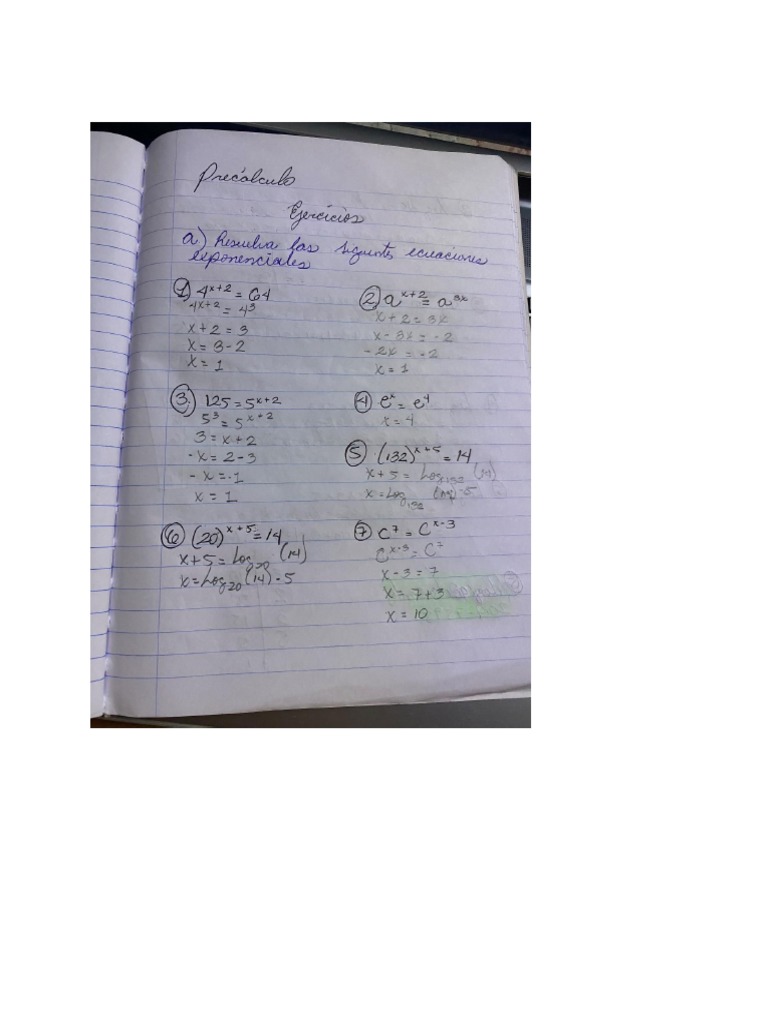 Precálculo
Ejercicios
a) Resuelva las siguientes ecuaciones
exponenciales
1) 4^x+2 = 64
4^x+2 = 4^3
x+2 = 3
x = 3-2
x = 1
2) a^x+2 = a^3x
x+2 = 3x
x-3x = -2
-2x = -2
x = 1
3) 125 = 5^x+2
5^3 = 5^x+2
3 = x+2
-x = 2-3
-x = -1
x = 1
4) e^x = e^4
x = 4
5) (132)^x+5 = 14
x+5 = Log_132 (14)
x = Log_132 (14)-5
6) (20)^x+5 = 14
x+5 = Log_20 (14)
x = Log_20 (14)-5
7) C^7 = C^x-3
C^x-3 = C^7
x-3 = 7
x = 7+3
x = 10